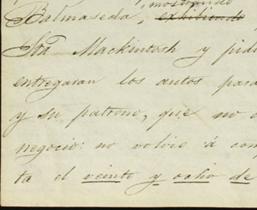 mostrando
Balmaseda, exhibiendo
Sta Mackintosh y pidi
entregaran los autos para
y su patrono, que no e
negocio: no volvió á com
ta el veinte y ocho de